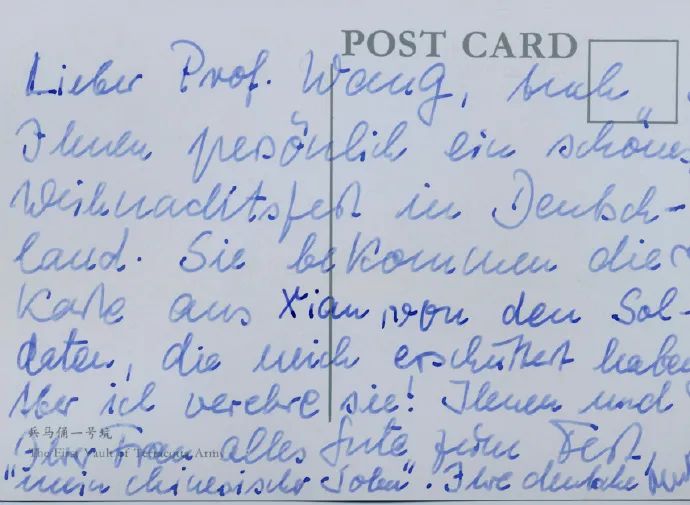 POST CARD
Lieber Prof. Wang, auch
Ihnen persönlich ein schönes
Weihnachtsfest in Deutsch-
land. Sie bekommen diese
Karte aus Xian, von den Sol-
daten, die mich erschüttert haben
Aber ich verehre sie! Ihnen und
兵马俑一号坑
The First Vault of Terracotta Army
Ihrer Frau alles Gute zum Fest,
"mein chinesischer Sohn". Ihre deutsche